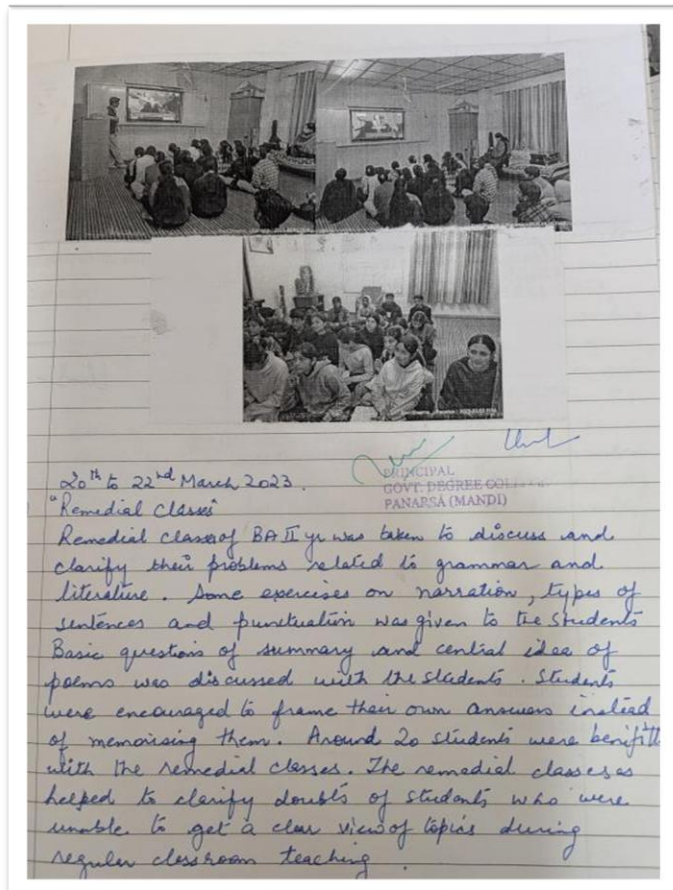 PRINCIPAL
GOVT. DEGREE COLL
PANARSA (MANDI)
20th to 22nd March 2023.
"Remedial Classes"
Remedial classes of BA II yr was taken to discuss and
clarify their problems related to grammar and
literature. Some exercises on narration, types of
sentences and punctuation was given to the students
Basic questions of summary and central idea of
poems was discussed with the students. Students
were encouraged to frame their own answers instead
of memorising them. Around 20 students were benifitt
with the remedial classes. The remedial classes as
helped to clarify doubts of students who were
unable to get a clear view of topics during
regular classroom teaching.